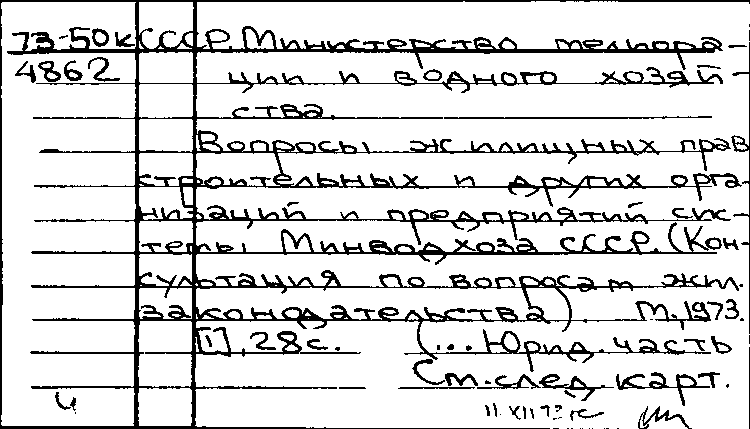 73-50к СССР. Министерство мелиора-
4862 ции и водного хозяй-
ства.
Вопросы жилищных прав
строительных и других орга-
низаций и предприятий сис-
темы Минводхоза СССР. (Кон-
сультация по вопросам жил.
законодательства). М., 1973.
[1], 28с. (... Юрид. часть
См. след. карт.
ч 11 XII 73 гс